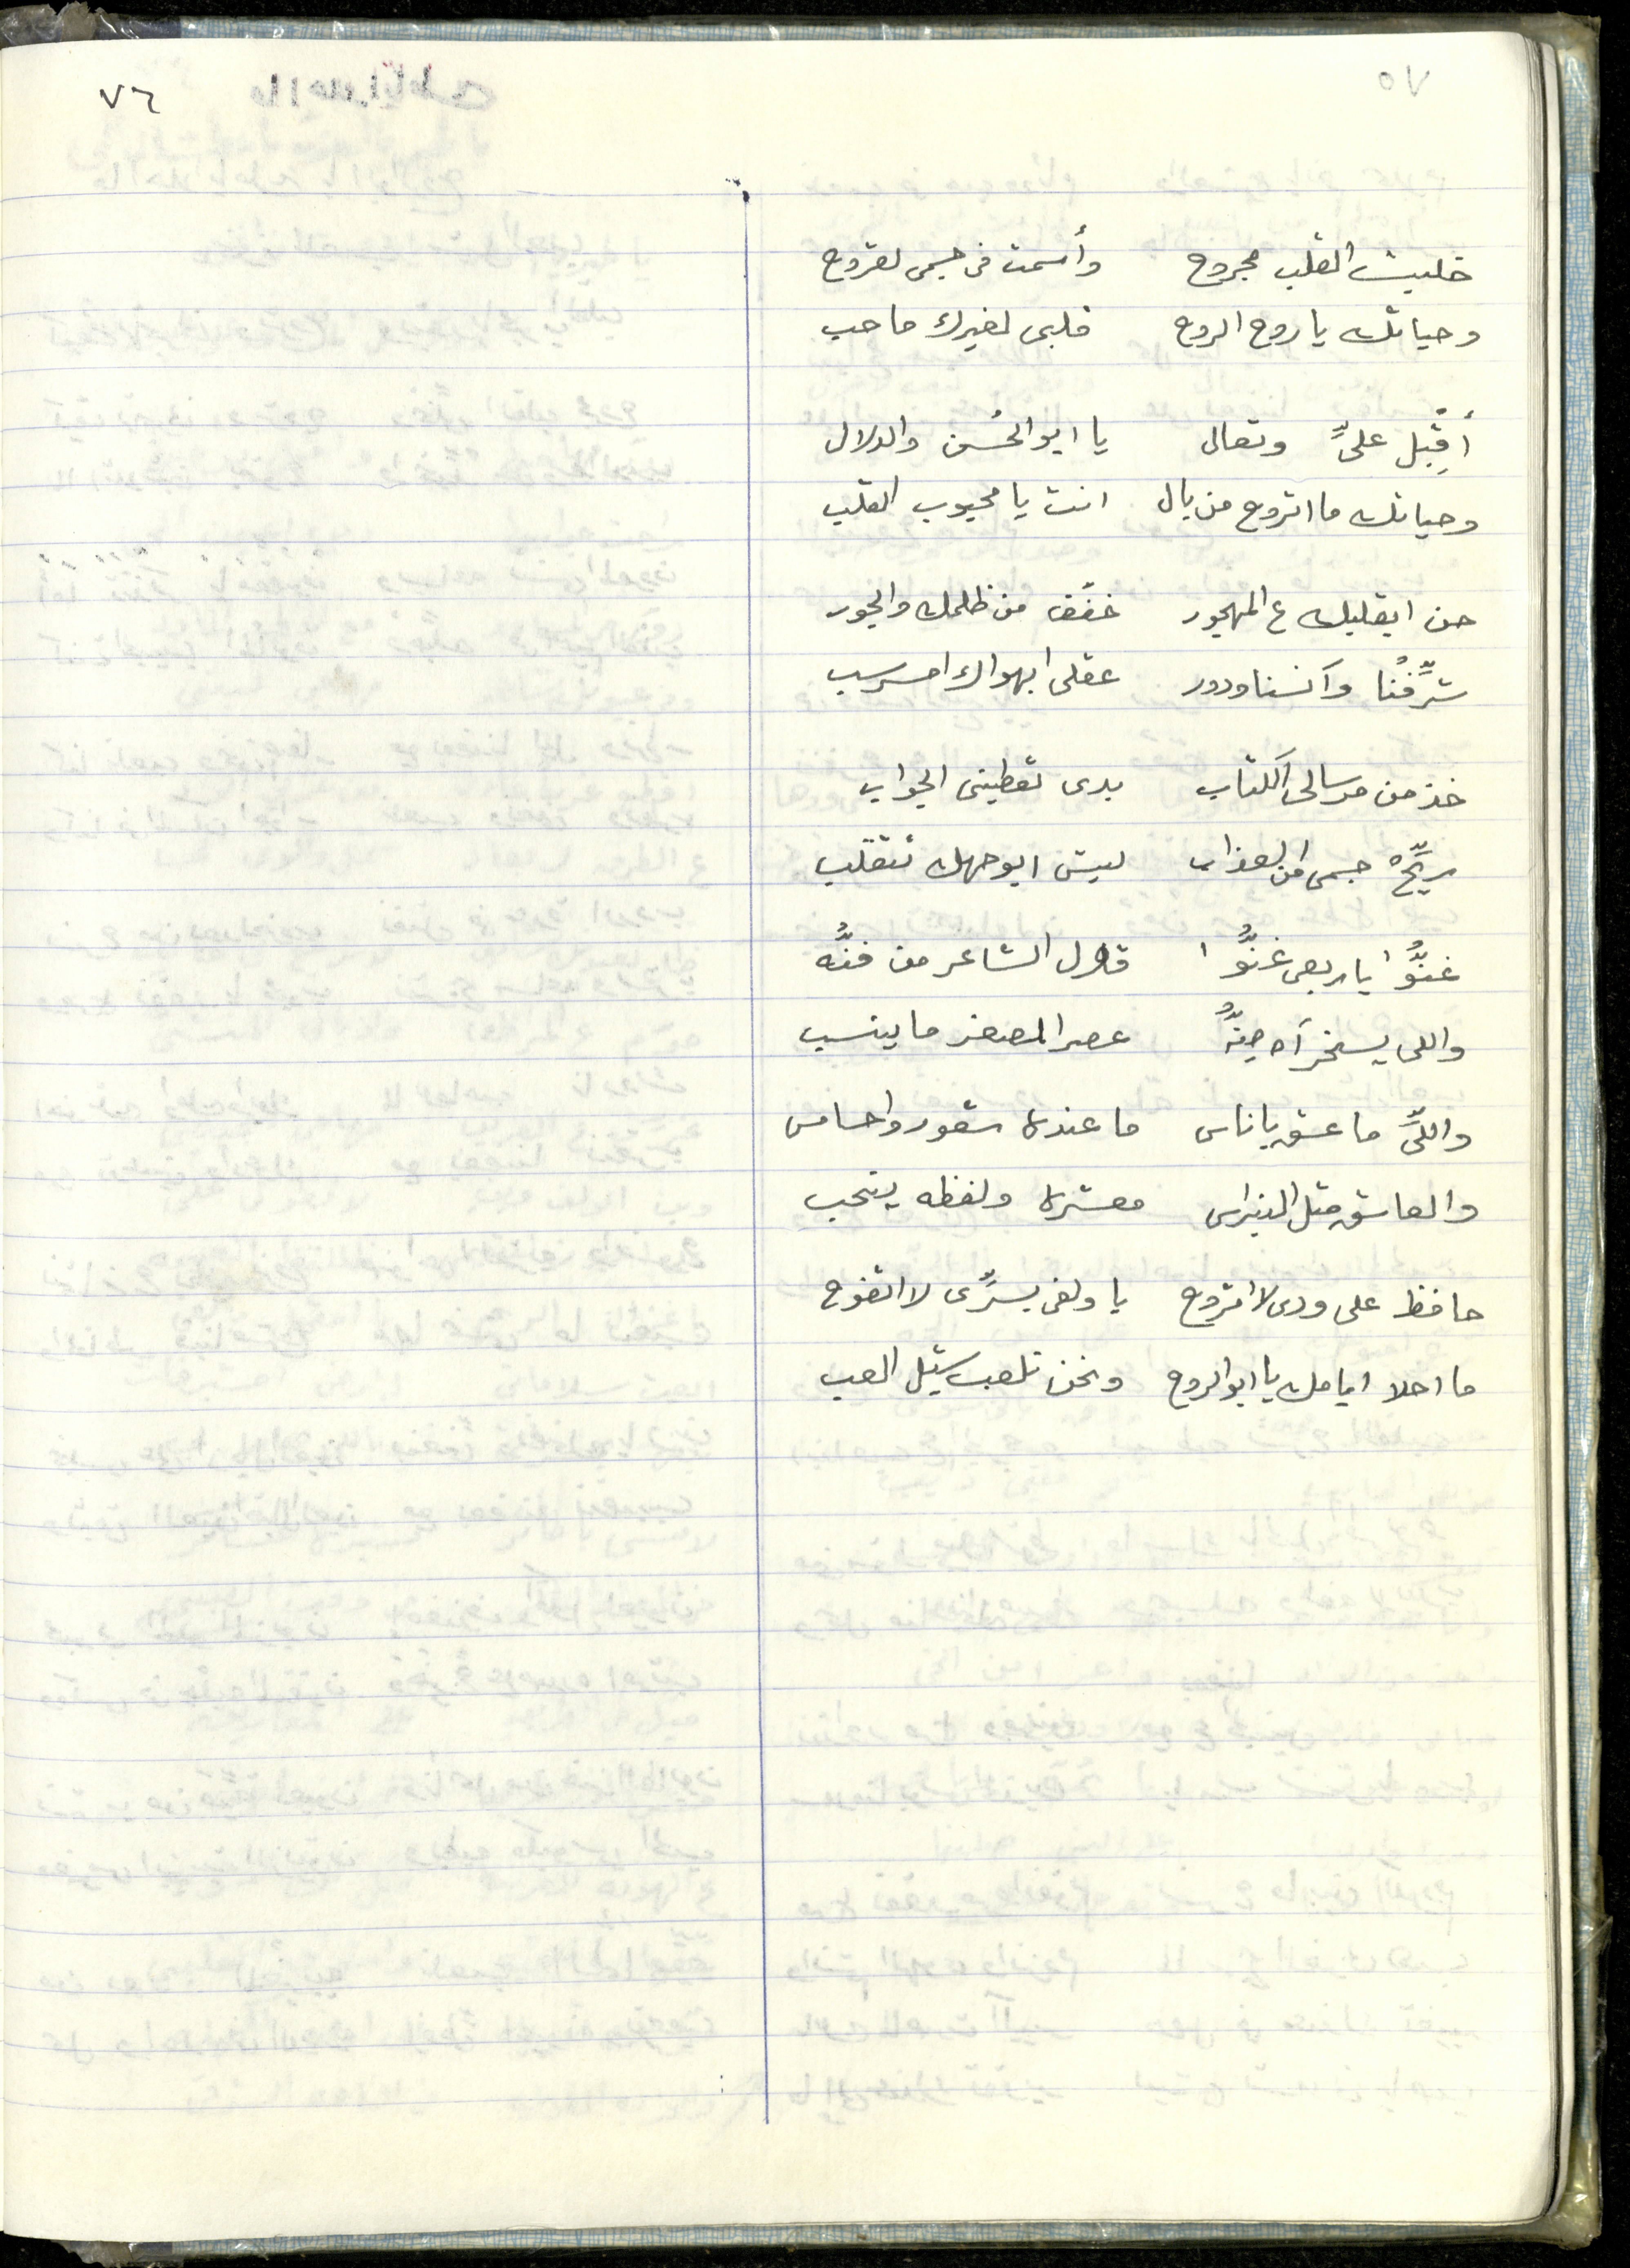 ٧٥
٧٦
خليت القلب مجروح وأسمت فى جسمى لقروح
وحياتك يا روح الروح قلبى لغيرك ما حب
أقبِل علىَّ وتعال يا ابو الحُسن والدلال
وحياتك ما اتروح من بال انت يا محبوب القلب
حن ابقلبك ع المهجور خفِّف من ظلمك والجور
شرِّفنُا وآنسنا ودور عقلى ابهواك امسرسب
خذ من مرسالى الكتاب بدى تعطينى الجواب
ريِّحْ جسمى من العذاب ليش ابوجهك تتقلب
غنُّوا يا ربعى غنُّوا قال الشاعر من فنُّه
واللى يسخر آه منُّه عصر المصغر ما ينسب
واللىَّ ما عشق يا ناس ما عنده شعور واحساس
والعاشق متل النبراس معشره ولفظه ينحب
حافظ على ودى لا اتروح يا ولفى بسرِّى لا اتفوح
ما احلا ايامك يا ابو الروح ونحن نلعب سيّل العب